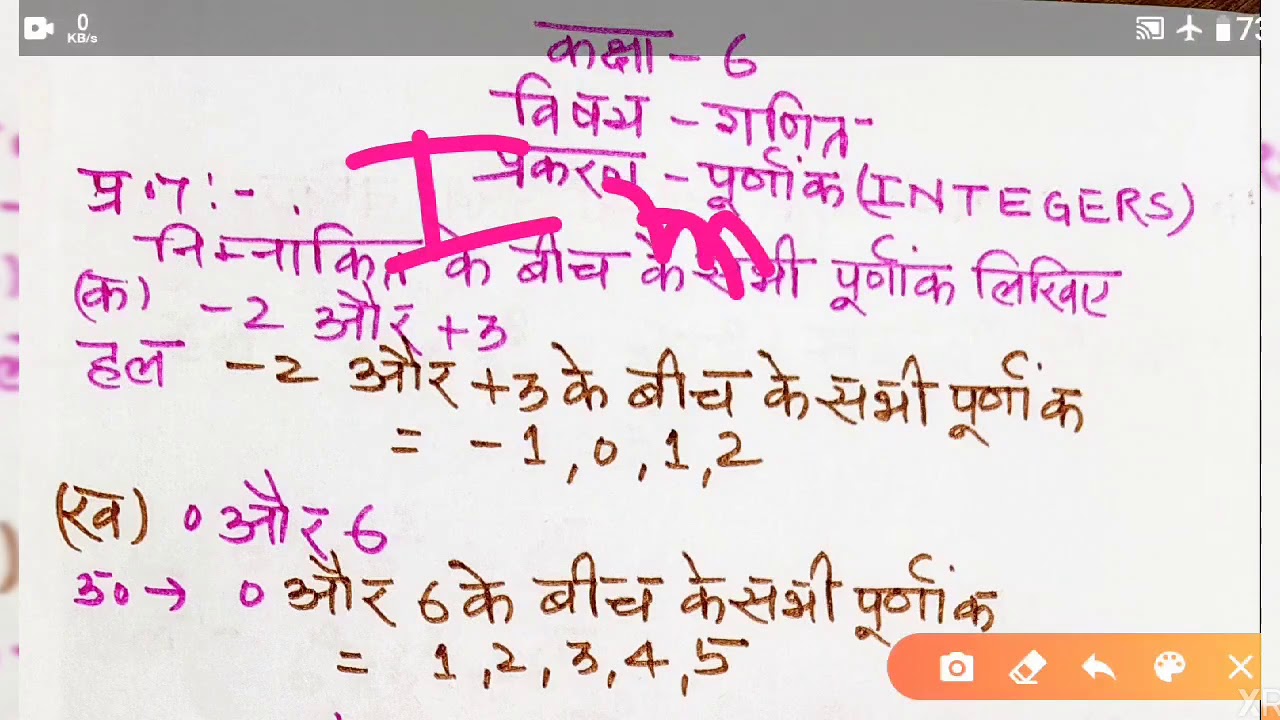 0
KB/s
73
कक्षा - 6
विषय - गणित
प्रकरण - पूर्णांक (INTEGERS)
प्र॰7:-
निम्नांकित के बीच के सभी पूर्णांक लिखिए
(क) -2 और +3
हल -2 और +3 के बीच के सभी पूर्णांक
= -1, 0, 1, 2
(ख) 0 और 6
उ0→ 0 और 6 के बीच के सभी पूर्णांक
= 1, 2, 3, 4, 5
XR